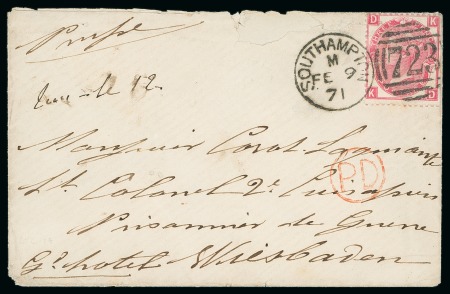 D K
SOUTHAMPTON
M
FE 9
71
723
K D
12.
Monsieur
Lt. Colonel 2e Cuirassiers
PD
Prisonnier de Guerre
Gd. hotel Wiesbaden